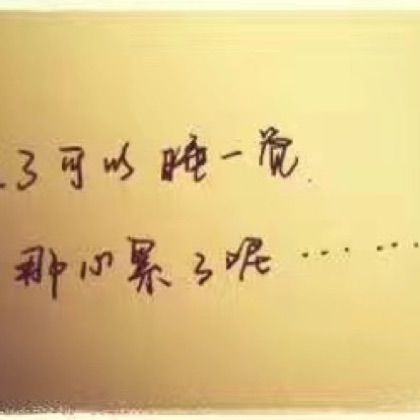 了可以睡一觉.
那心累了呢……